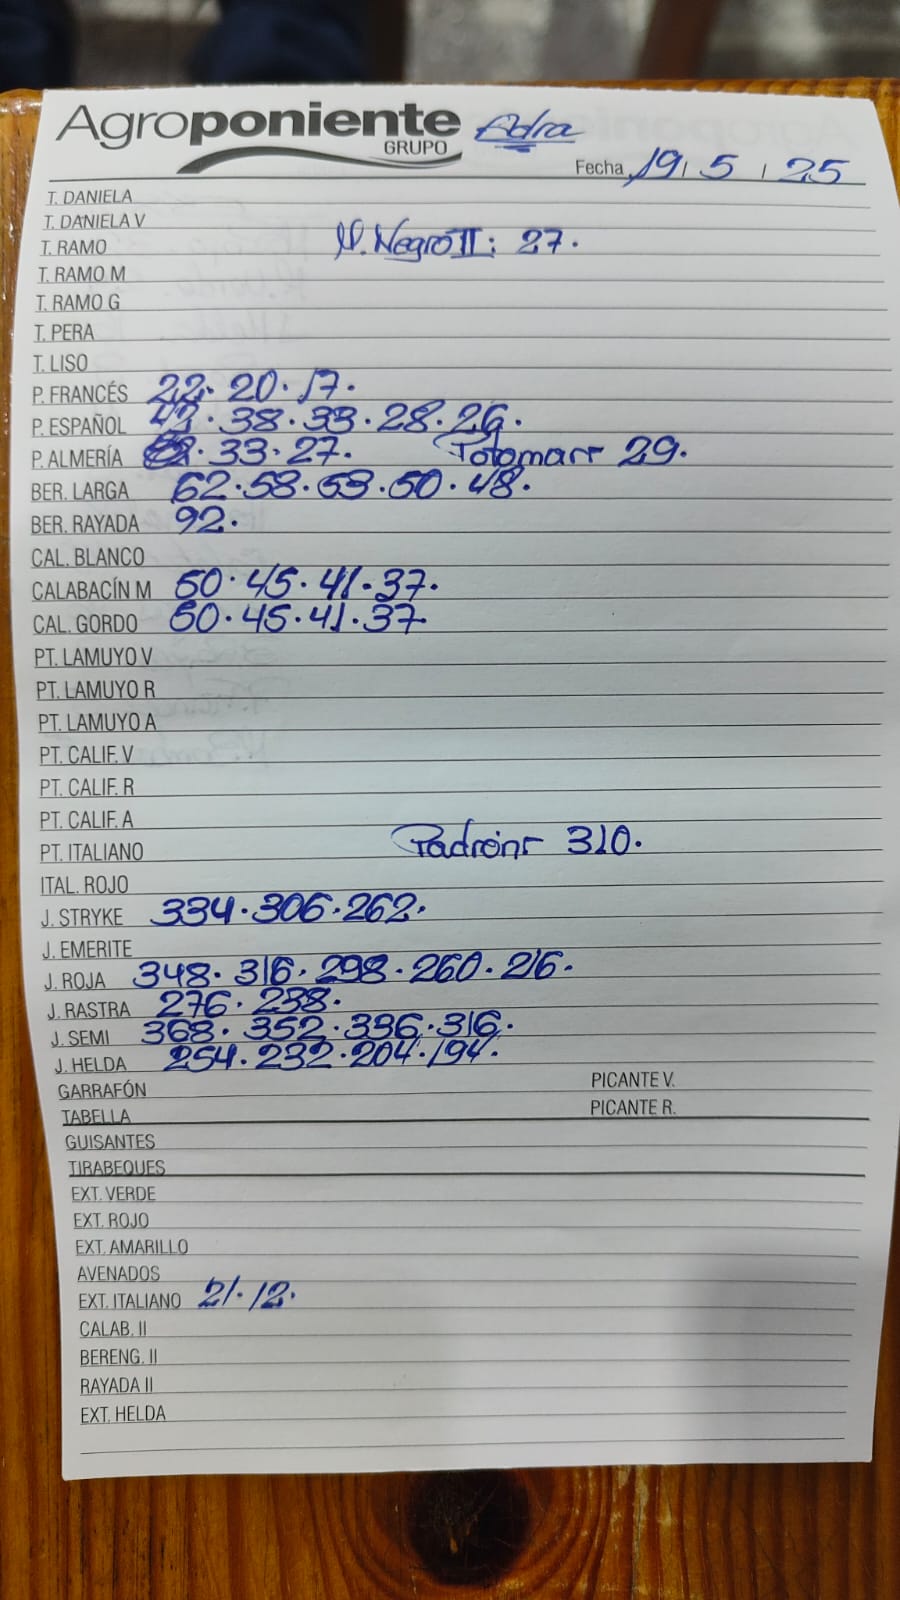 Agroponiente Adra
GRUPO
Fecha 19 / 5 / 25
T. DANIELA
T. DANIELA V
T. RAMO M. Negro II: 27.
T. RAMO M
T. RAMO G
T. PERA
T. LISO
P. FRANCÉS 22. 20. 17.
P. ESPAÑOL 42. 38. 33. 28. 26.
P. ALMERÍA 33. 27. 29.
BER. LARGA 62. 58. 53. 50. 48.
BER. RAYADA 92.
CAL. BLANCO
CALABACÍN M 50. 45. 41. 37.
CAL. GORDO 50. 45. 41. 37
PT. LAMUYO V
PT. LAMUYO R
PT. LAMUYO A
PT. CALIF. V
PT. CALIF. R
PT. CALIF. A
PT. ITALIANO 310.
ITAL. ROJO
J. STRYKE 334. 306. 262.
J. EMERITE
J. ROJA 348. 316. 298. 260. 216.
J. RASTRA 276. 238.
J. SEMI 368. 352. 336. 316.
J. HELDA 254. 232. 204. 194.
GARRAFÓN PICANTE V.
TABELLA PICANTE R.
GUISANTES
TIRABEQUES
EXT. VERDE
EXT. ROJO
EXT. AMARILLO
AVENADOS
EXT. ITALIANO 21. 12.
CALAB. II
BERENG. II
RAYADA II
EXT. HELDA